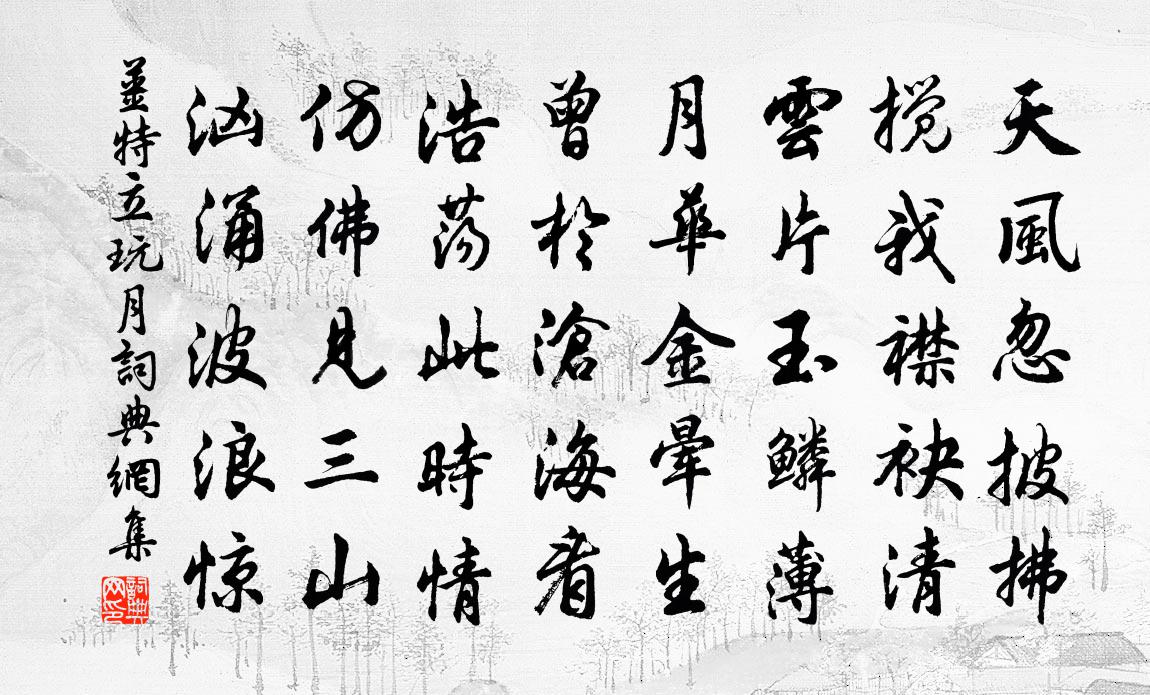 天風忽披拂
搅我襟袂清
雲片玉鳞薄
月華金暈生
曾於滄海看
浩荡此時情
仿佛見三山
汹涌波浪惊
姜特立玩月詞典網集
詞典网印